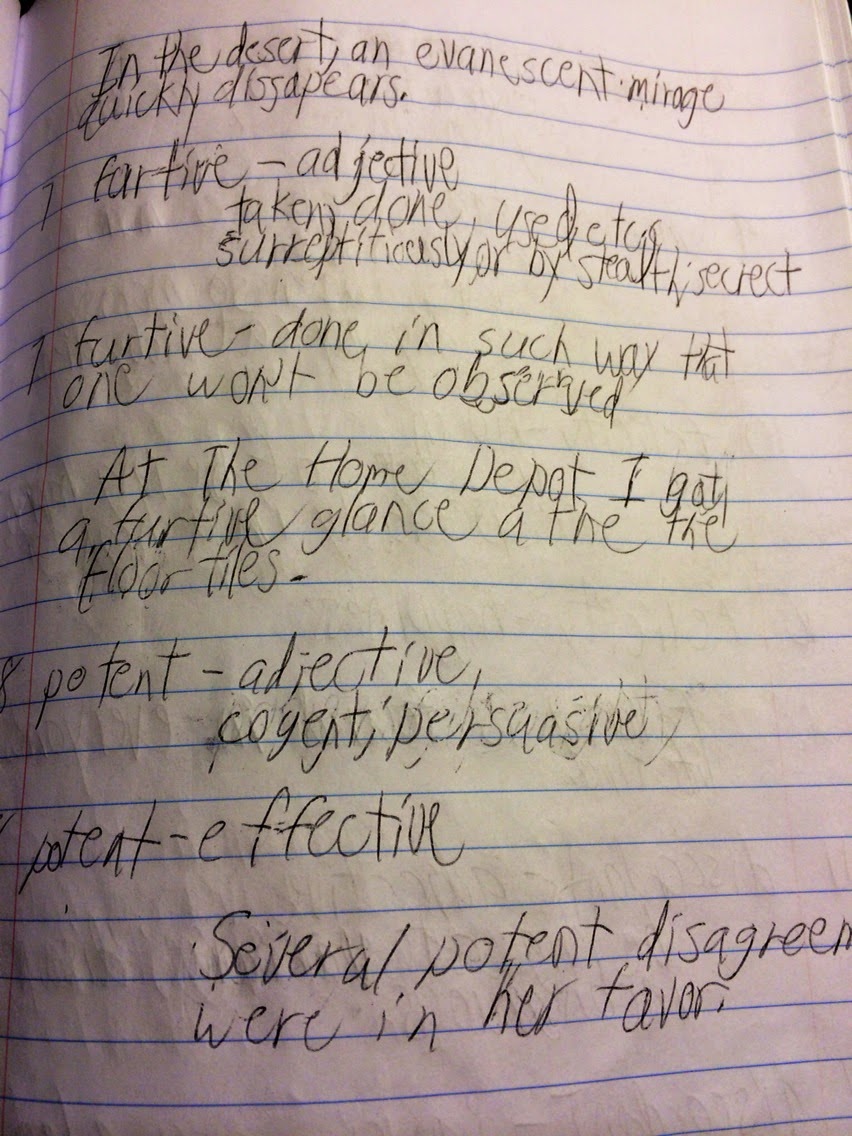 In the desert, an evanescent mirage
quickly dissapears.
7 furtive - adjective
taken, done, used, etc.,
surreptitiously, or by stealth; secrect
7 furtive - done in such way that
one won't be observed
At The Home Depot, I got
a furtive glance a the the
floor tiles.
8 potent - adjective,
cogent; persuasive
potent - effective
Several potent disagreem
were in her favor.